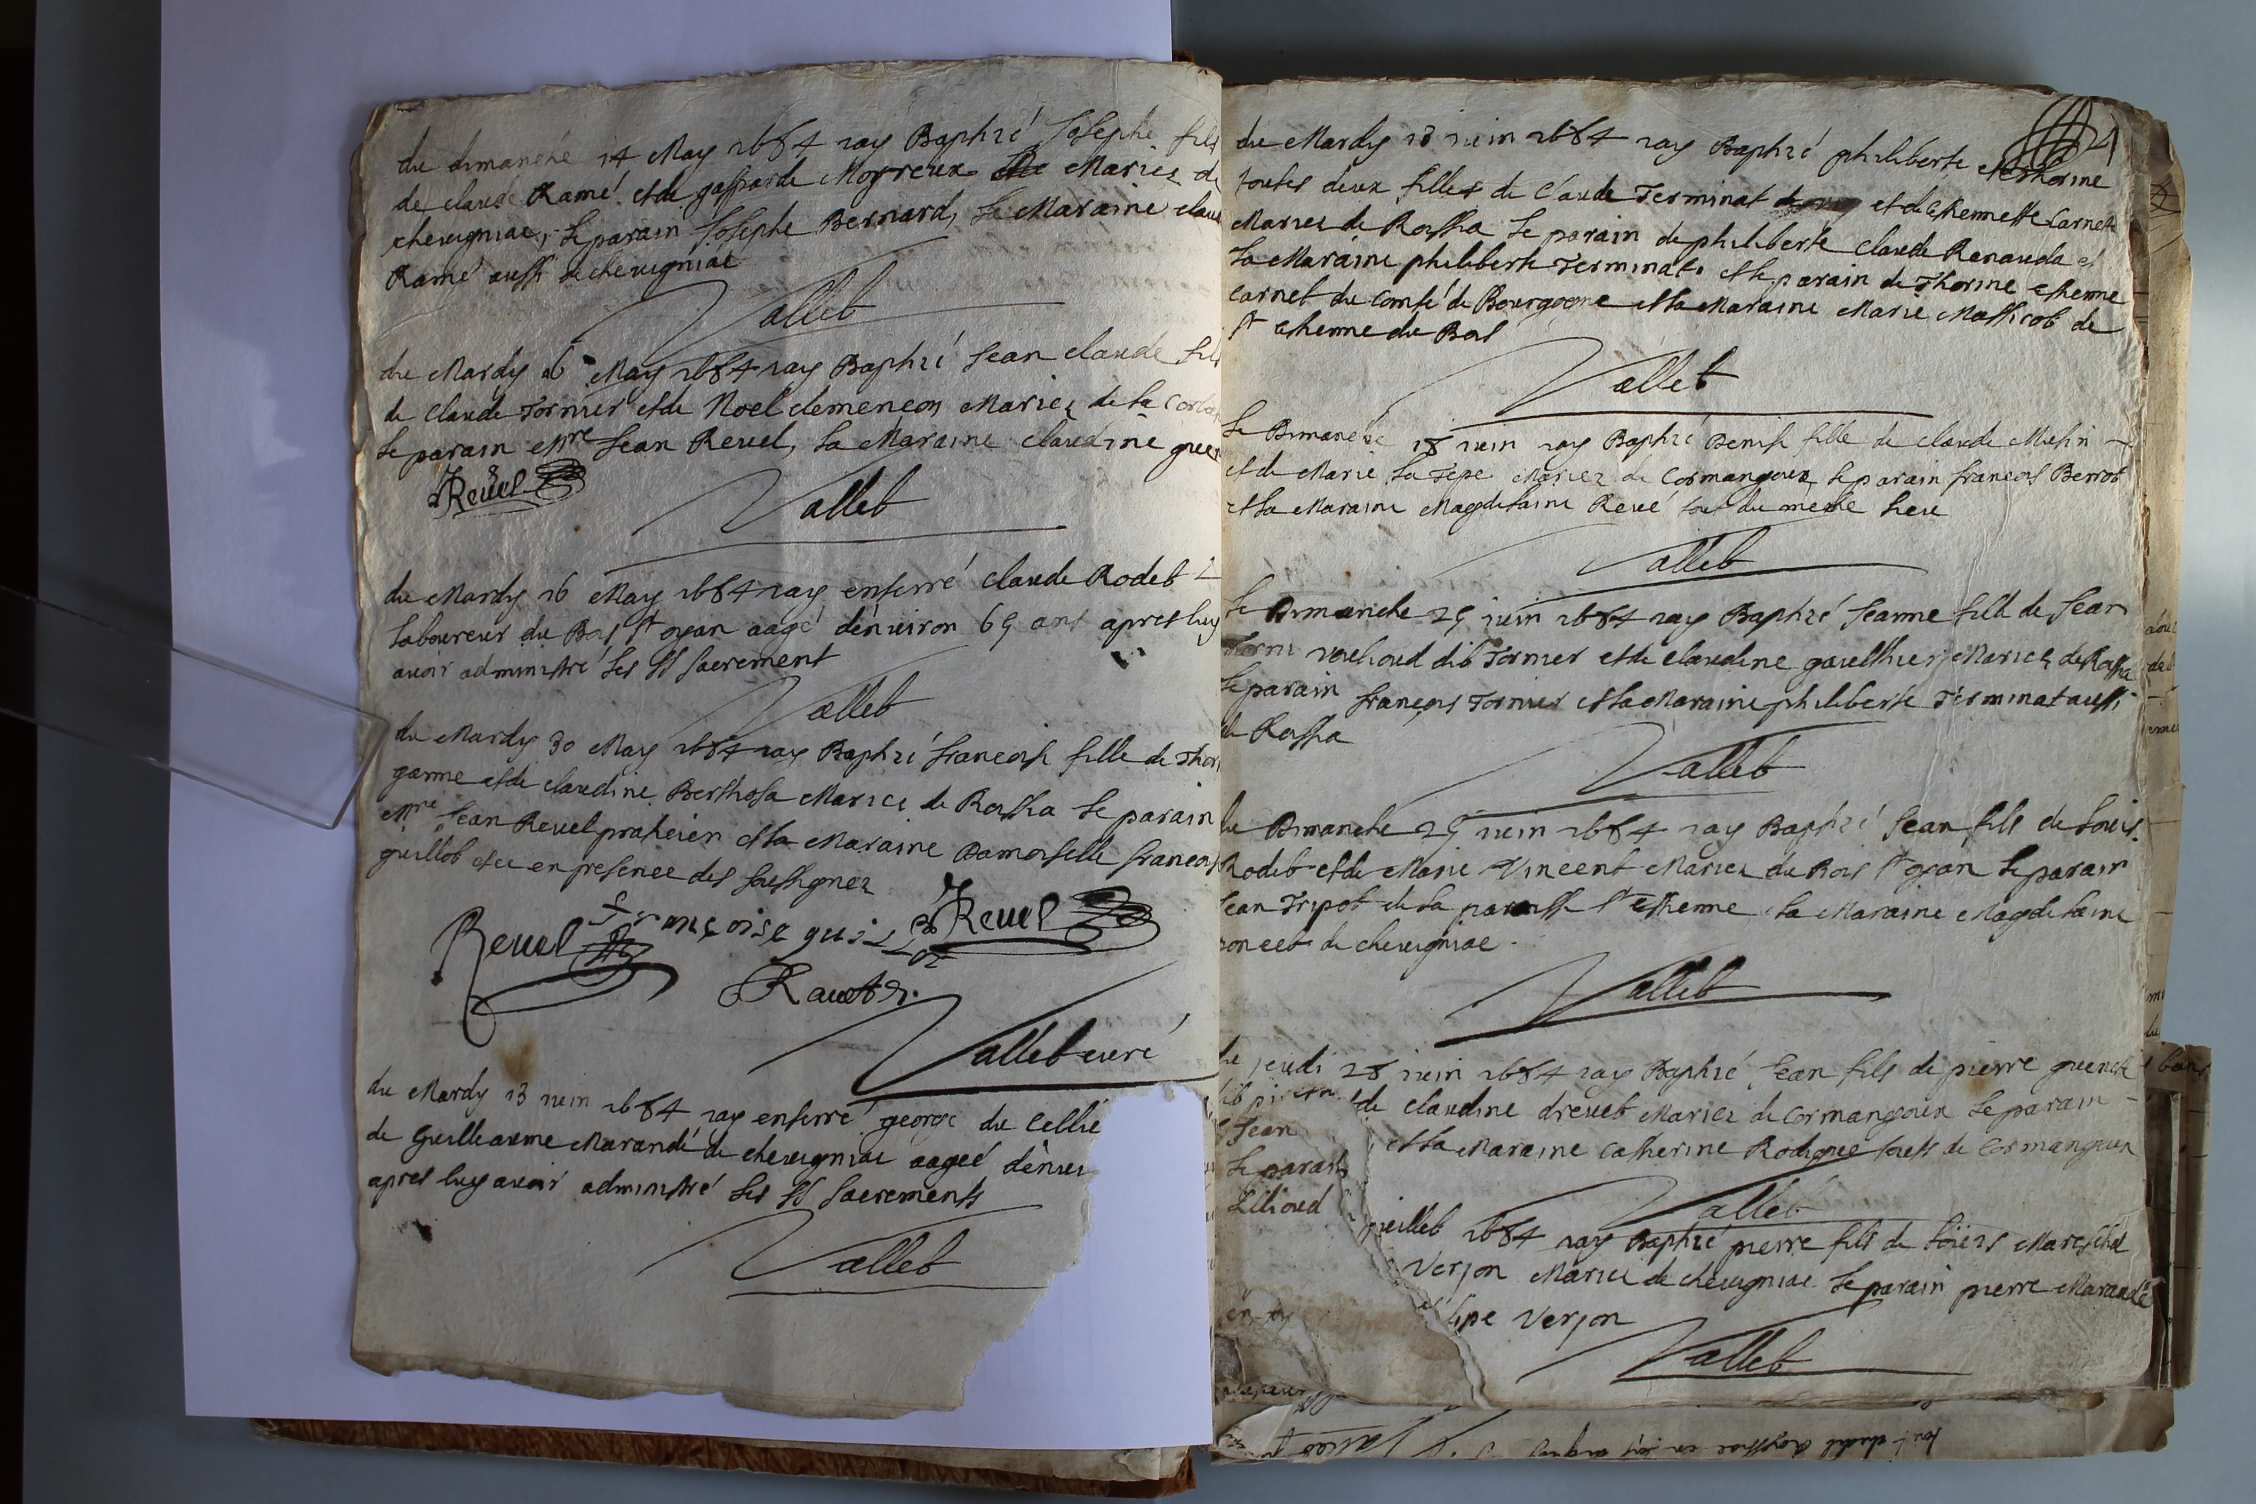 du dimanche 14 May 1684 jay Baptizé Josephe fils
de claude Ramé et de gasparde Moyreux Mariez de
chevigniac, le parain Josephe Bernard, la Maraine claud
Ramé aussi de chevigniac
Vallet
du Mardy 16 May 1684 jay Baptizé Jean claude fils
de claude Tornier et de Noel clemencon Mariez de la
le parain Mre Jean Revel, la Maraine claudine
JRevel
Vallet
du Mardy 16 May 1684 jay enterré claude Rodet
laboureur du Bois st oyan aagé denviron 69 ans apres luy
avoir administré les SS sacrement
Vallet
du Mardy 30 May 1684 jay Baptizé francoise fille de
garme et de claudine Berthosa Mariez de Rossa le parain
Mre Jean Revel praticien et la Maraine Damoiselle
guillot et ce en presence des soussignez
Revel françoise guillot JRevel
Ravet
Vallet curé
du Mardy 13 juin 1684 jay enterré george du
de Guilleaume Marandé de chevigniac aageé
apres luy avoir administré les SS sacrements
Vallet
du Mardy 13 juin 1684 jay Baptizé philiberte et Thorine
toutes deux filles de claude Terminat et de ethennette Carnet
Mariez de Rossa le parain de philiberte claude Renauda et
la Maraine philiberte Terminat et le parain de Thorine ethenne
Carnet du comté de Bourgogne et la Maraine Marie Massicot de
st ethenne du Bois
Vallet
le Dimanche 18 juin jay Baptizé Denise fille de claude
et de Marie la Tepe Mariez de Cormangoux le parain francois Berrot
et la Maraine Magdelaine Revé tous du mesme lieu
Vallet
le Dimanche 25 juin 1684 jay Baptizé Jeanne fille de Jean
dit Tornier et de claudine gaulthier Mariez de Rossa
le parain françois Tornier et la Maraine philiberte Terminat aussi
de Rossa
Vallet
du Dimanche 25 juin 1684 jay Baptizé Jean fils de Louis
Rodet et de Marie Vincent Mariez du Bois st oyan le parain
Jean Tripot de la paroisse st Esthenne la Maraine Magdelaine
poncet de chevigniac
Vallet
du jeudi 28 juin 1684 jay Baptizé Jean fils de pierre
de claudine drevet Mariez de Cormangoux le parain
Jean et la Maraine catherine tous de Cormangoux
Vallet
le parain
juillet 1684 jay Baptizé pierre fils de Loüis Mareschal
Verjon Mariez de chevigniac le parain pierre Marandé
Verjon
Vallet